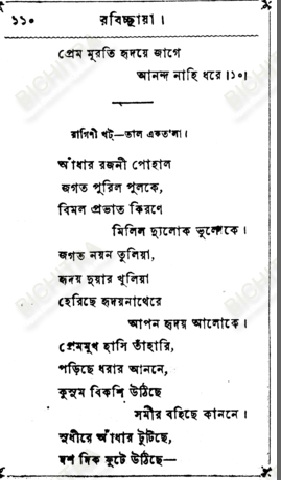 ১১০ রবিচ্ছায়া।
প্রেম মূরতি হৃদয়ে জাগে
আনন্দ নাহি ধরে।১০॥
রাগিণী খট্—তাল একতালা।
আঁধার রজনী পোহাল
জগত পূরিল পুলকে,
বিমল প্রভাত কিরণে
মিলিল দ্যুলোক ভূলোকে।
জগত নয়ন তুলিয়া,
হৃদয় দুয়ার খুলিয়া
হেরিছে হৃদয়নাথেরে
আপন হৃদয় আলোকে॥
প্রেমমুখ হাসি তাঁহারি,
পড়িছে ধরার আননে,
কুসুম বিকশি উঠিছে
সমীর বহিছে কাননে॥
সুধীরে আঁধার টুটিছে,
দশ দিক ফুটে উঠিছে—